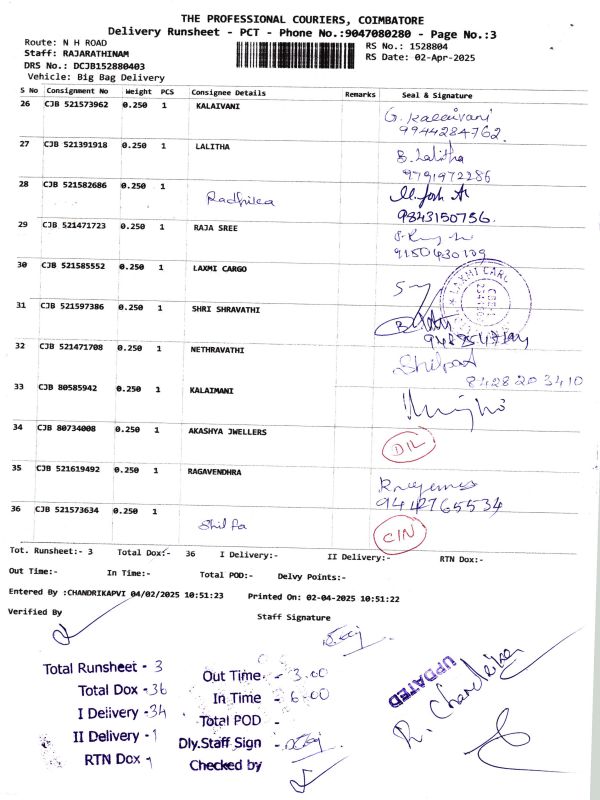 THE PROFESSIONAL COURIERS, COIMBATORE
Delivery Runsheet - PCT - Phone No.:9047080280 - Page No.:3
Route: N H ROAD
RS No.: 1528804
Staff: RAJARATHINAM
RS Date: 02-Apr-2025
DRS No.: DCJB152880403
Vehicle: Big Bag Delivery
S No Consignment No Weight PCS Consignee Details Remarks Seal & Signature
26 CJB 521573962 0.250 1 KALAIVANI G. Kalaivani
9944284762.
27 CJB 521391918 0.250 1 LALITHA B. Lalitha
9791972286
28 CJB 521582686 0.250 1 Radhika
9843150756.
29 CJB 521471723 0.250 1 RAJA SREE
9150430109
30 CJB 521585552 0.250 1 LAXMI CARGO
LAXMI CARG
31 CJB 521597386 0.250 1 SHRI SHRAVATHI
32 CJB 521471708 0.250 1 NETHRAVATHI
8428203410
33 CJB 80585942 0.250 1 KALAIMANI
34 CJB 80734008 0.250 1 AKASHYA JWELLERS DIL
35 CJB 521619492 0.250 1 RAGAVENDHRA
9442765534
36 CJB 521573634 0.250 1 Shilpa CIN
Tot. Runsheet:- 3 Total Dox:- 36 I Delivery:- II Delivery:- RTN Dox:-
Out Time:- In Time:- Total POD:- Delvy Points:-
Entered By :CHANDRIKAPVI 04/02/2025 10:51:23 Printed On: 02-04-2025 10:51:22
Verified By
Staff Signature
Total Runsheet - 3
Total Dox - 36
I Delivery - 34
II Delivery - 1
RTN Dox - 1
Out Time - 3.00
In Time - 6.00
Total POD -
Dly.Staff Sign -
Checked by
UPDATED
R. Chandrika